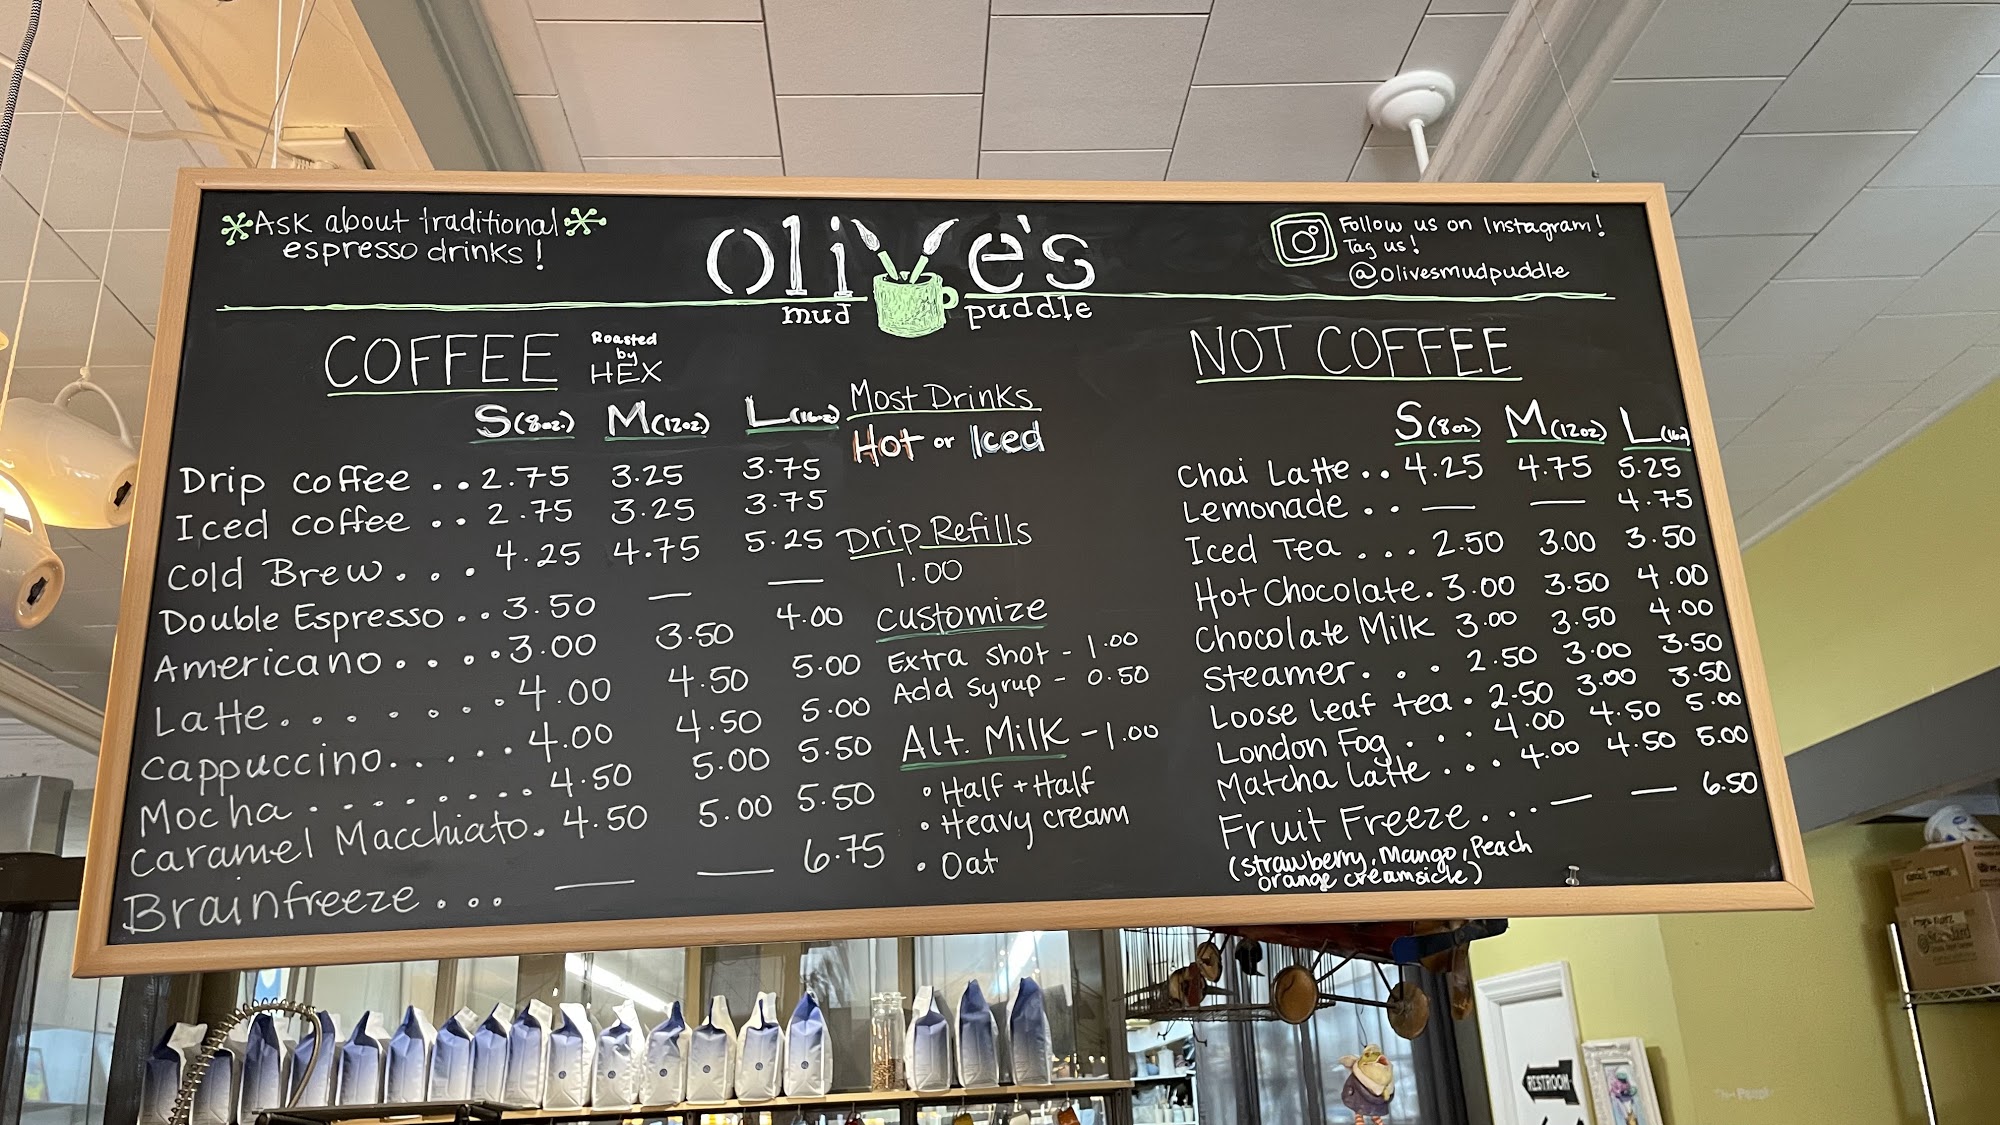 Ask about traditional
espresso drinks!
Olive's
mud puddle
Follow us on Instagram!
Tag us!
@olivesmudpuddle
COFFEE
Roasted
by
HEX
S (8oz.) M (12oz) L (16oz)
Drip coffee .. 2.75 3.25 3.75
Iced coffee .. 2.75 3.25 3.75
Cold Brew . . . 4.25 4.75 5.25
Double Espresso .. 3.50 — —
Americano. . . . 3.00 3.50 4.00
Latte. . . . . . . . 4.00 4.50 5.00
Cappuccino. . . . . 4.00 4.50 5.00
Mocha . . . . . . . . 4.50 5.00 5.50
Caramel Macchiato. 4.50 5.00 5.50
Brainfreeze . . . — — 6.75
Most Drinks
Hot or Iced
Drip Refills
1.00
Customize
Extra shot - 1.00
Add syrup - 0.50
Alt. Milk - 1.00
• Half + Half
• Heavy cream
• Oat
NOT COFFEE
S (8oz) M (12oz) L (16oz)
Chai Latte .. 4.25 4.75 5.25
Lemonade . . — — 4.75
Iced Tea . . . 2.50 3.00 3.50
Hot Chocolate. 3.00 3.50 4.00
Chocolate Milk 3.00 3.50 4.00
Steamer. . . 2.50 3.00 3.50
Loose leaf tea . 2.50 3.00 3.50
London Fog . . . 4.00 4.50 5.00
Matcha Latte . . . 4.00 4.50 5.00
Fruit Freeze . . . — — 6.50
(Strawberry, Mango, Peach
orange creamsicle)
RESTROOM